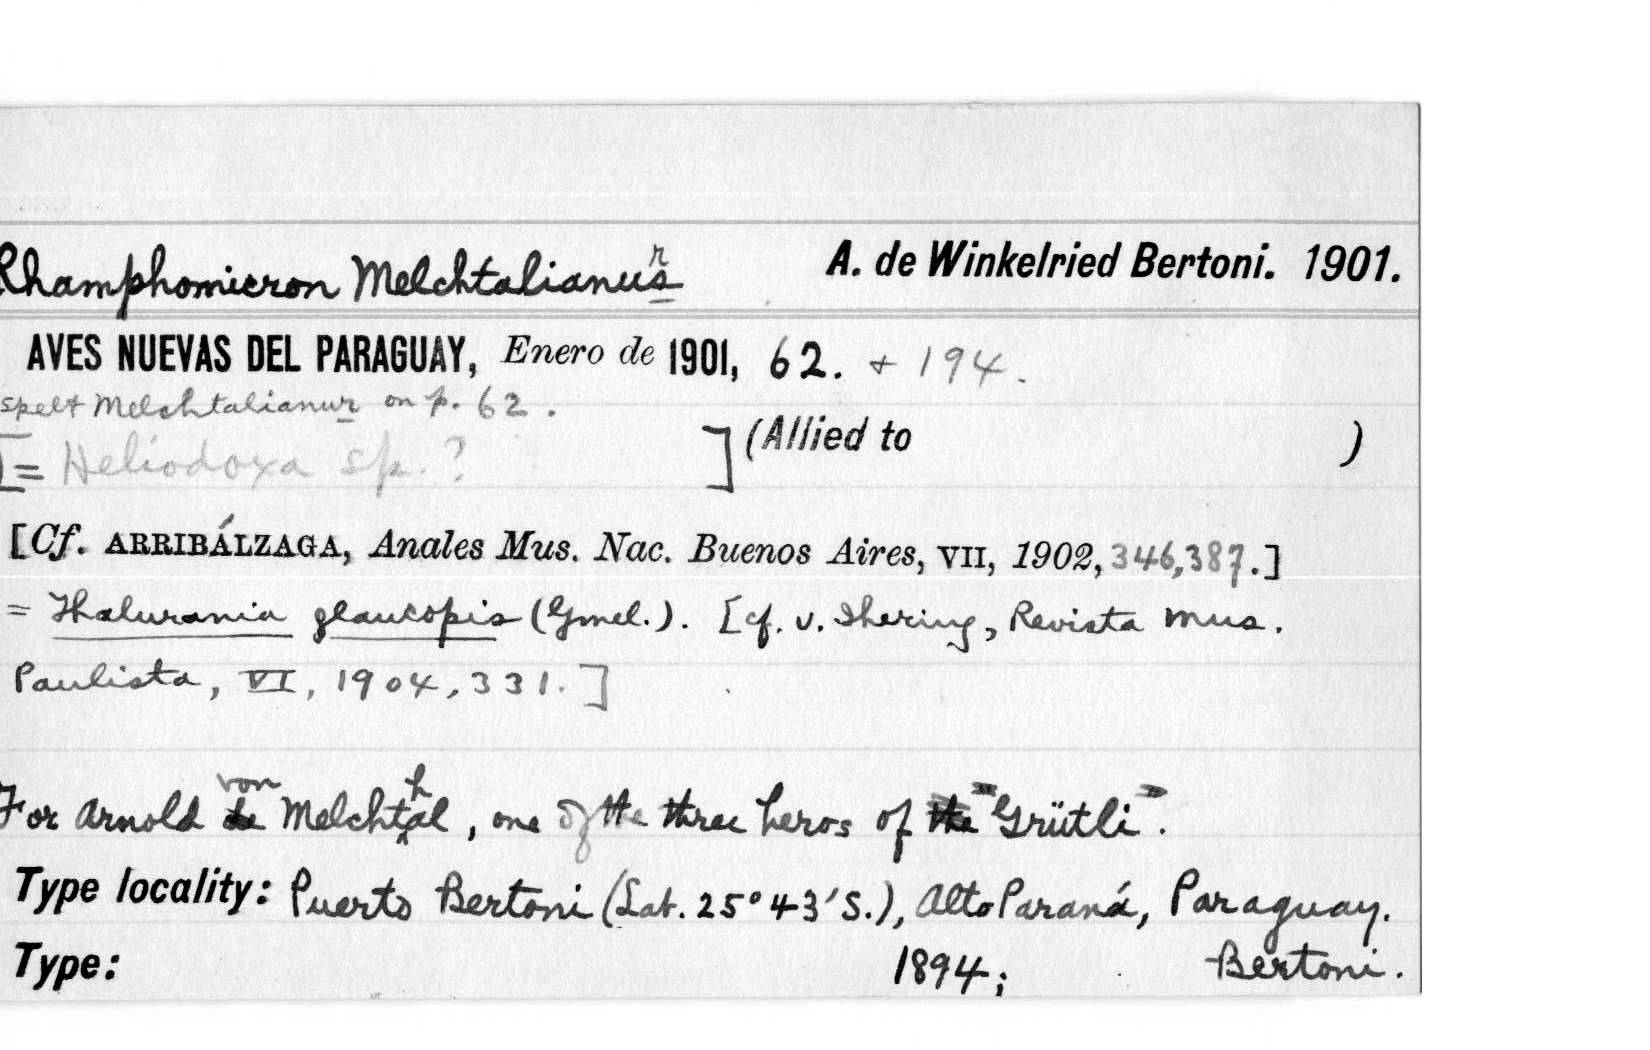 Rhamphomicron Melchtalianus r A. de Winkelried Bertoni. 1901.
AVES NUEVAS DEL PARAGUAY, Enero de 1901, 62. + 194.
spelt Melchtalianur on p. 62.
[= Heliodoxa sp.? ] (Allied to )
[Cf. ARRIBÁLZAGA, Anales Mus. Nac. Buenos Aires, VII, 1902, 346,387.]
= Thalurania glaucopis (Gmel.). [cf. v. Ihering, Revista Mus.
Paulista, VI, 1904, 331.]
von h
For Arnold de Melchtal, one of the three heros of the "Grütli".
Type locality: Puerto Bertoni (Lat. 25°43'S.), Alto Paraná, Paraguay.
Type: 1894; Bertoni.